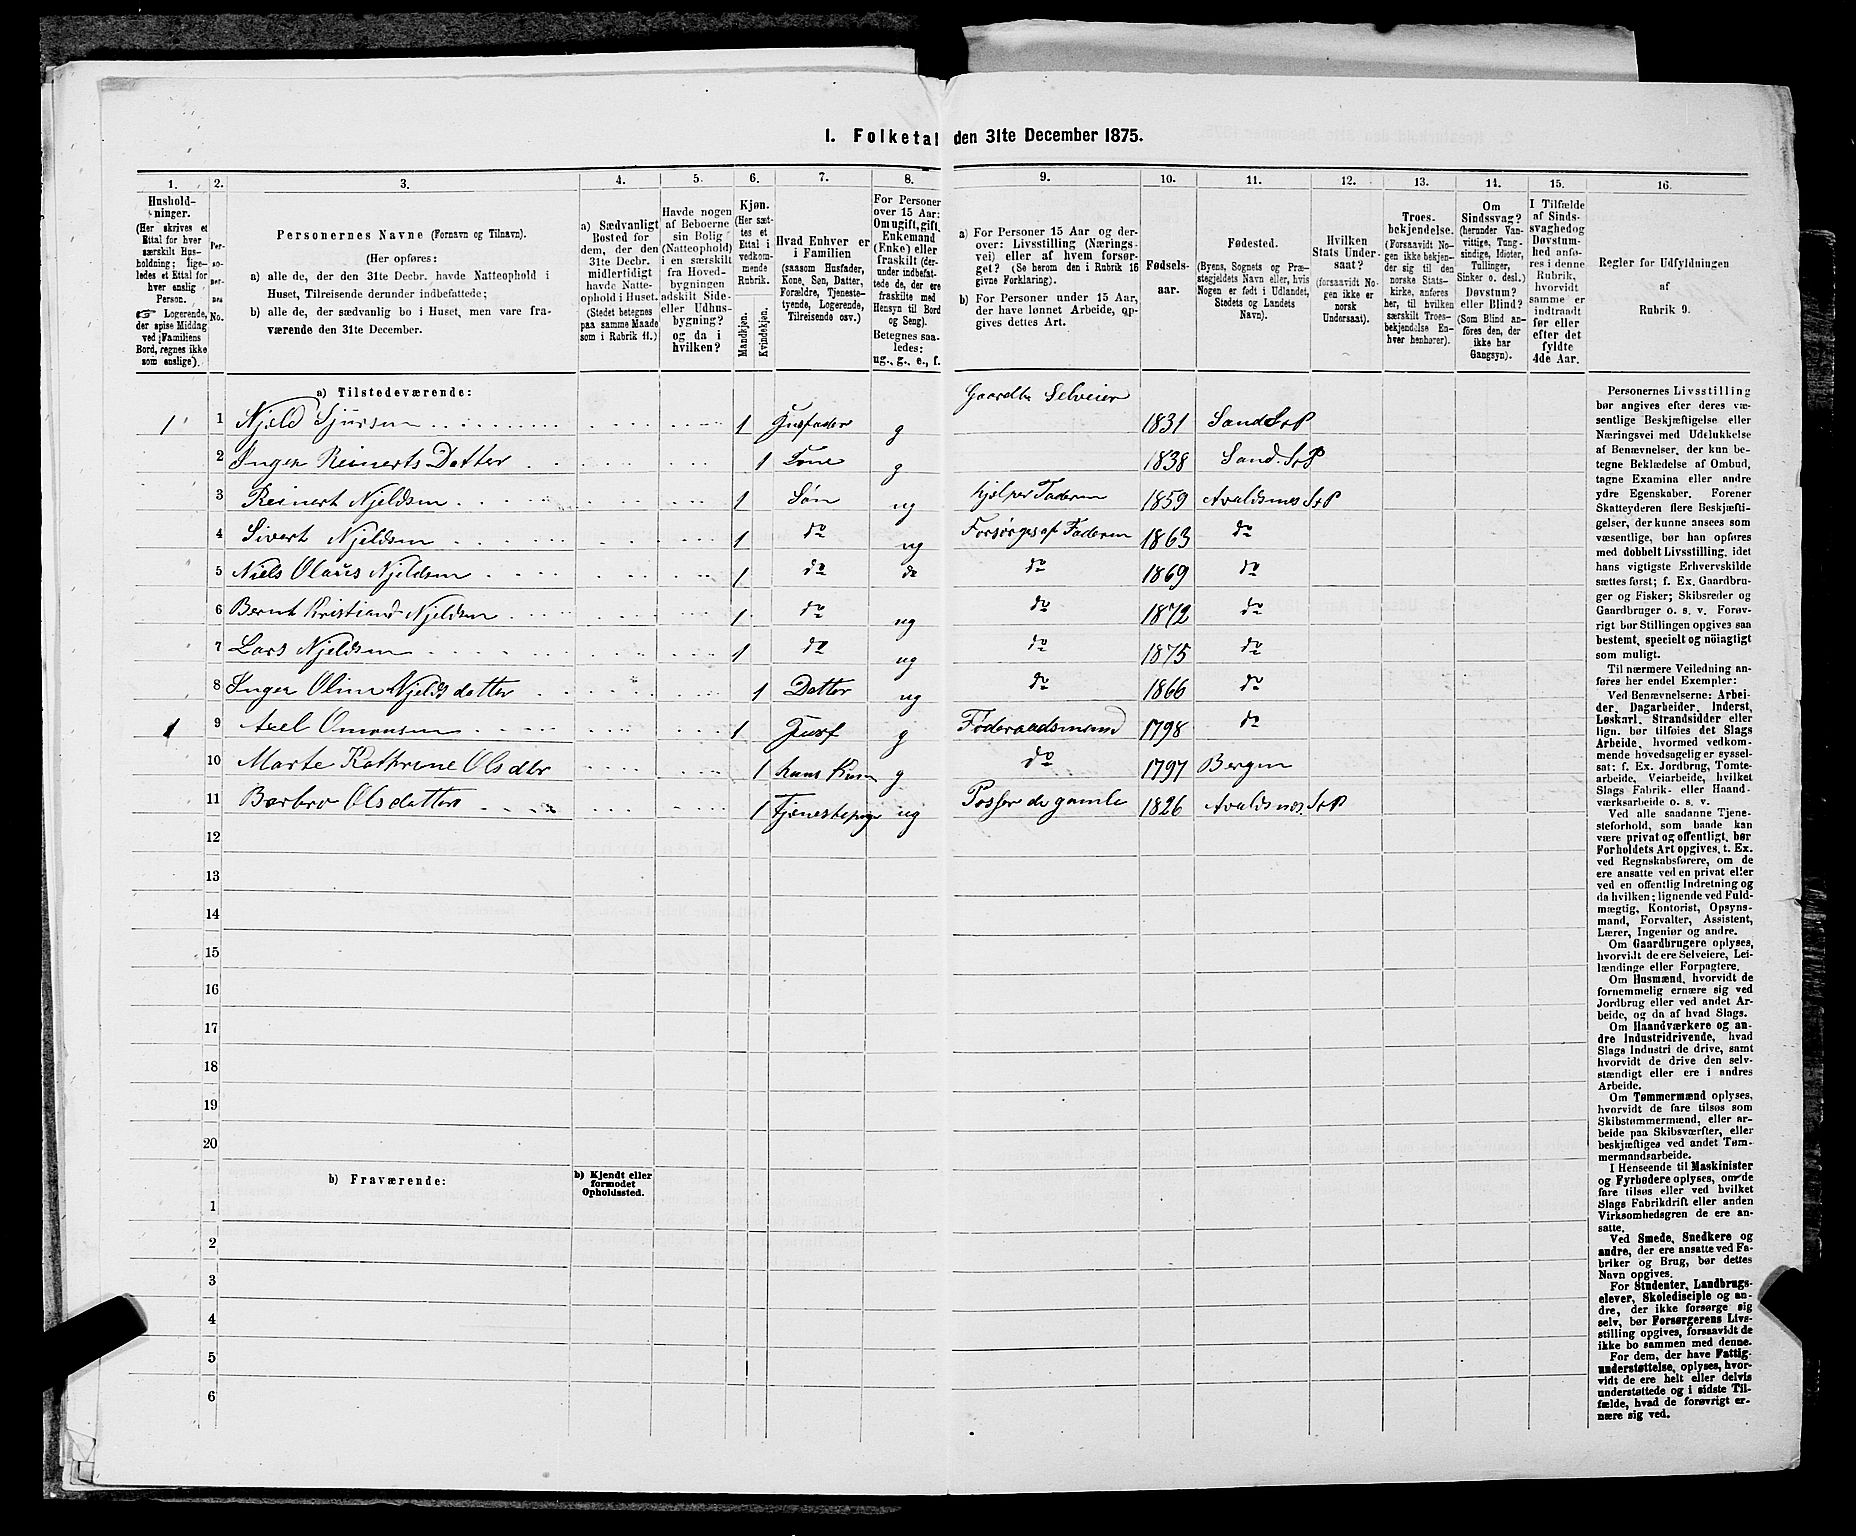 1. Folketal den 31te December 1875.
1. 2. 3. 4. 5. 6. 7. 8. 9. 10. 11. 12. 13. 14. 15. 16.
Hushold-
ninger.
(Her skrives et
Ettal for hver
særskilt Hus-
holdning; lige-
ledes et Ettal for
hver enslig
Person.
Logerende,
der spise Middag
ved Familiens
Bord, regnes ikke
som enslige).
Per-
so-
ner-
nes
No.
Personernes Navne (Fornavn og Tilnavn).
(Her opføres:
a) alle de, der den 31te Decbr. havde Natteophold i
Huset, Tilreisende derunder indbefattede;
b) alle de, der sædvanlig bo i Huset, men vare fra-
værende den 31te December.
a) Sædvanligt
Bosted for
dem, der den
31te Decbr.
midlertidigt
havde Natte-
ophold i Huset.
(Stedet betegnes
paa samme Maade
som i Rubrik 11.)
Havde nogen
af Beboerne
sin Bolig
(Natteophold)
i en særskilt
fra Hoved-
bygningen
adskilt Side-
eller Udhus-
bygning?
og da i
hvilken?
Kjøn.
(Her sæt-
tes et
Ettal i
vedkom-
mende
Rubrik.
Mandkjøn.
Kvindekjøn.
Hvad Enhver er
i Familien
(saasom Husfader,
Kone, Søn, Datter,
Forældre, Tjeneste-
tyende, Logerende,
Tilreisende osv.)
For Personer
over 15 Aar:
Om ugift, gift,
Enkemand
(Enke) eller
fraskilt (der-
under indbefat-
tede de, der ere
fraskilte med
Hensyn til Bord
og Seng).
Betegnes saa-
ledes:
ug., g., e., f.
a) For Personer 15 Aar og der-
over: Livsstilling (Nærings-
vei) eller af hvem forsør-
get? (Se herom den i Rubrik 16
givne Forklaring).
b) For Personer under 15 Aar,
der have lønnet Arbeide, op-
gives dettes Art.
Fødsels-
aar.
Fødested.
(Byens, Sognets og Præ-
stegjeldets Navn eller, hvis
Nogen er født i Udlandet,
Stedets og Landets
Navn).
Hvilken
Stats Under-
saat?
(forsaavidt No-
gen ikke er
norsk
Undersaat).
Troes-
bekjendelse.
(Forsaavidt No-
gen ikke bekjen-
der sig til den
norske Stats-
kirke, anføres
her, til hvilken
særskilt Troes-
bekjendelse En-
hver henhører).
Om
Sindssvag?
(herunder Van-
vittige, Tung-
sindige, Idioter,
Tullinger,
Sinker o. desl.)
Døvstum?
eller Blind?
(Som Blind an-
føres den, der
ikke har
Gangsyn).
I Tilfælde
af Sinds-
svaghed og
Døvstum-
hed anfø-
res i denne
Rubrik,
hvorvidt
samme er
indtraadt
før eller
efter det
fyldte
4de Aar.
Regler for Udfyldningen
af
Rubrik 9.
a) Tilstedeværende:
Gaardb. Selveier
1 1 Njeld Sjursen 1 Husfader g 1831 Sand S+P
2 Inger Reinerts Datter 1 Kone g 1838 Sand. S+P
3 Reinert Njeldsen 1 Søn ug hjelper Faderen 1859 Avaldsnes S+P
4 Sivert Njeldsen 1 do ug Forsørges af Faderen 1863 do
5 Niels Olaus Njeldsen 1 do do do 1869 do
6 Bernt Kristian Njeldsen 1 do ug do 1872 do
7 Lars Njeldsen 1 do ug do 1875 do
8 Inger Oline Njeldsdatter 1 Datter ug do 1866 do
1 9 Axel Omonsen 1 Husf g Føderaadsmand 1798 do
10 Marte Kathrine Olsdtr 1 hans Kone g do 1797 Bergen
11 Barbro Olsdatter 1 Tjenestepige ug Passer de gamle 1826 Avaldsnes. S+P
12
13
14
15
16
17
18
19
20
b) Fraværende:
b) Kjendt eller
formodet
Opholdssted.
1
2
3
4
5
6
Personernes Livsstilling
bør angives efter deres væ-
sentlige Beskjæftigelse eller
Næringsvei med Udelukkelse
af Benævnelser, der kun be-
tegne Beklædelse af Ombud,
tagne Examina eller andre
ydre Egenskaber. Forener
Skatteyderen flere Beskjæfti-
gelser, der kunne ansees som
væsentlige, bør han opføres
med dobbelt Livsstilling, idet
hans vigtigste Erhvervskilde
sættes først; f. Ex. Gaardbru-
ger og Fisker; Skibsreder og
Gaardbruger o. s. v. Forøv-
rigt bør Stillingen opgives saa
bestemt, specielt og nöiagtigt
som muligt.
Til nærmere Veiledning an-
føres her endel Exempler:
Ved Benævnelserne: Arbei-
der, Dagarbeider, Inderst,
Løskarl, Strandsidder eller
lign. bør tilføies det Slags
Arbeide, hvormed vedkom-
mende hovedsagelig er syssel-
sat: f. Ex. Jordbrug, Tomte-
arbeide, Veiarbeide, hvilket
Slags Fabrik- eller Haand-
værksarbeide o. s. v.
Ved alle saadanne Tjene-
steforhold, som baade kan
være privat og offentligt, bør
Forholdets Art opgives, t. Ex.
ved Regnskabsførere, om de
ere ansatte ved en privat eller
ved en offentlig Indretning og
da hvilken; lignende ved Fuld-
mægtig, Kontorist, Opsyns-
mand, Forvalter, Assistent,
Lærer, Ingeniør og andre.
Om Gaardbrugere oplyses,
hvorvidt de ere Selveiere, Lei-
lændinge eller Forpagtere.
Om Husmænd, hvorvidt de
fornemmelig ernære sig ved
Jordbrug eller ved andet Ar-
beide, og da af hvad Slags.
Om Haandværkere og an-
dre Industridrivende, hvad
Slags Industri de drive, samt
hvorvidt de drive den selv-
stændigt eller ere i andres
Arbeide.
Om Tømmermænd oplyses,
hvorvidt de fare tilsøs som
Skibstømmermænd, eller ar-
beide paa Skibsværfter, eller
beskjæftiges ved andet Tøm-
mermandsarbeide.
I Henseende til Maskinister
og Fyrbødere oplyses, om de
fare tilsøs eller ved hvilket
Slags Fabrikdrift eller anden
Virksomhedsgren de ere an-
satte.
Ved Smede, Snedkere og
andre, der ere ansatte ved Fa-
briker og Brug, bør dettes
Navn opgives.
For Studenter, Landbrugs-
elever, Skoledisciple og an-
dre, der ikke forsørge sig
selv, bør Forsørgerens Livs-
stilling opgives, forsaavidt de
ikke bo sammen med denne.
For dem, der have Fattig-
understøttelse, oplyses, hvor-
vidt de ere helt eller delvis
understøttede og i sidste Til-
fælde, hvad de forøvrigt er-
nære sig ved.